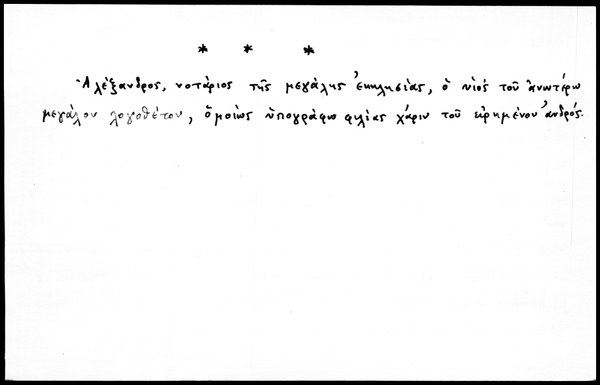 * * *
Ἀλέξανδρος, νοτάριος τῆς μεγάλης ἐκκλησίας, ὁ υἱός τοῦ ἀνωτέρω
μεγάλου λογοθέτου, ὁμοίως ὑπογράφω φιλίας χάριν τοῦ εἰρημένου ἀνδρός.